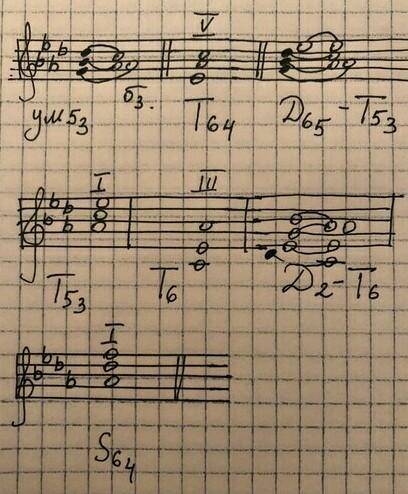 V
ум53 б3. T64 D65-T53
I III
T53 T6 D2-T6
I
S64